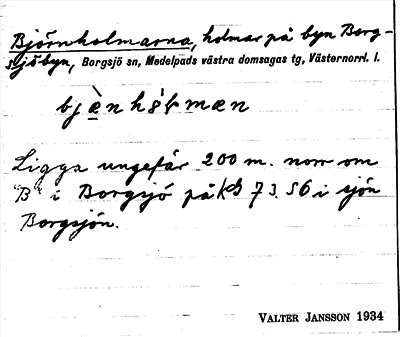 Björnholmarna, holmar på byn Borg-
sjöbyn, Borgsjö sn, Medelpads västra domsagas tg, Västernorrl. l.
Ligga ungefär 200 m. norr om
"B" i Borgsjö på kb 73.56 i sjön
Borgsjön.
VALTER JANSSON 1934